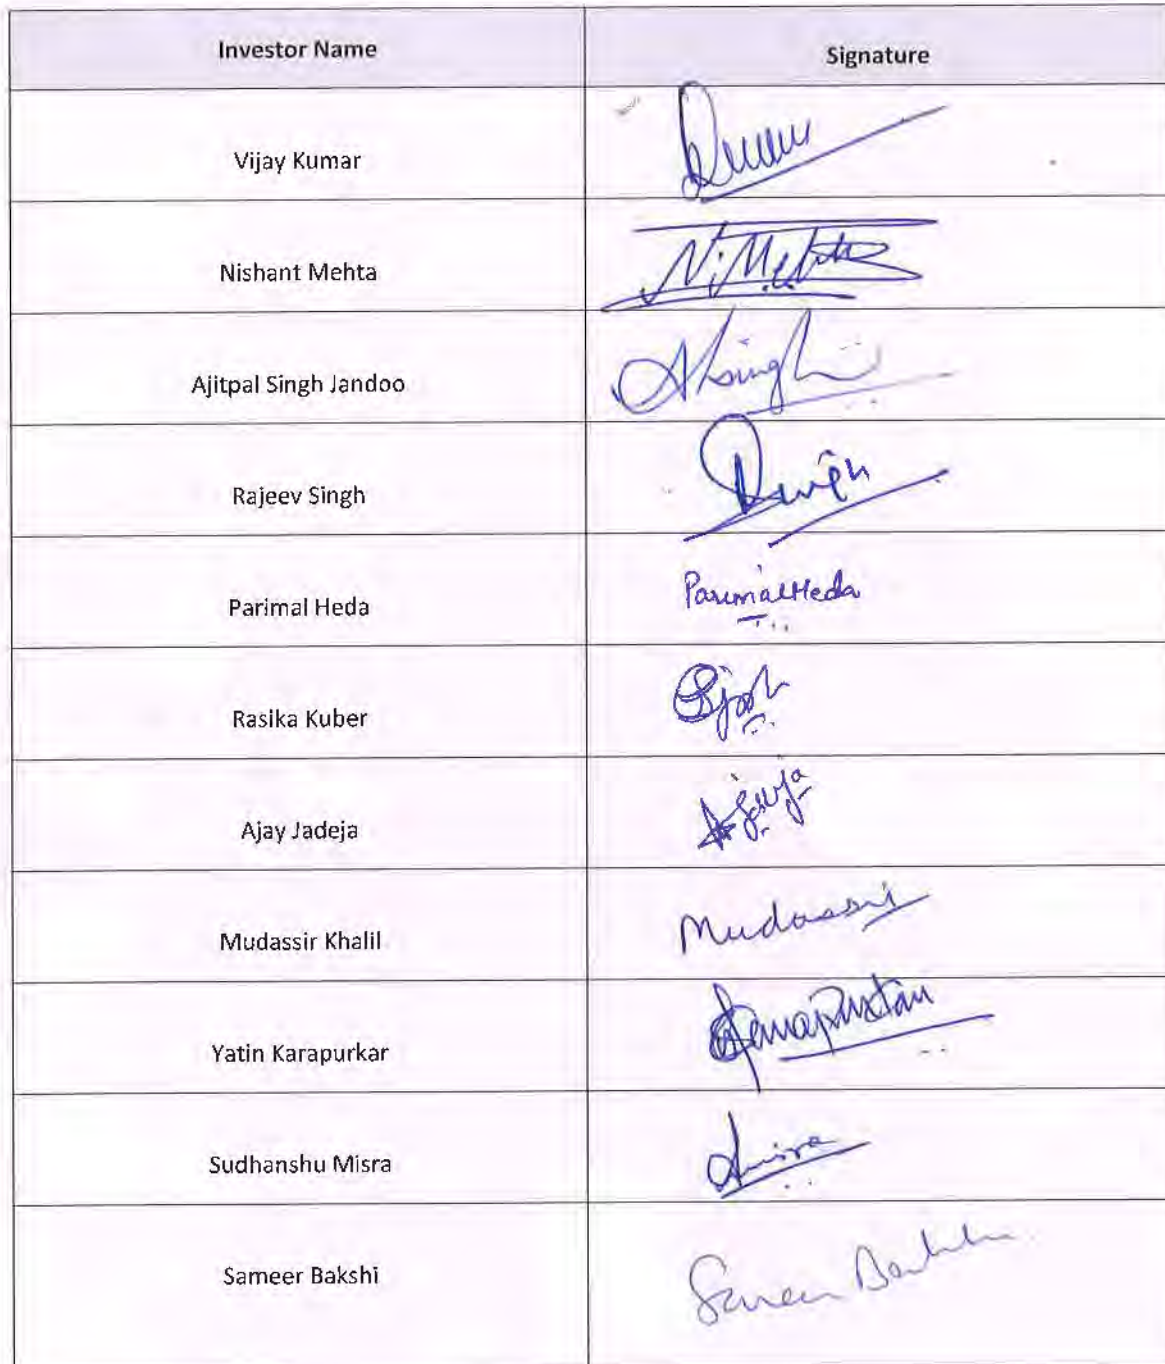 Investor Name
Signature
Vijay Kumar
Nishant Mehta
N. Mehta
Ajitpal Singh Jandoo
Singh
Rajeev Singh
Parimal Heda
Parimal Heda
Rasika Kuber
Ajay Jadeja
Mudassir Khalil
Mudassir
Yatin Karapurkar
Sudhanshu Misra
Sameer Bakshi